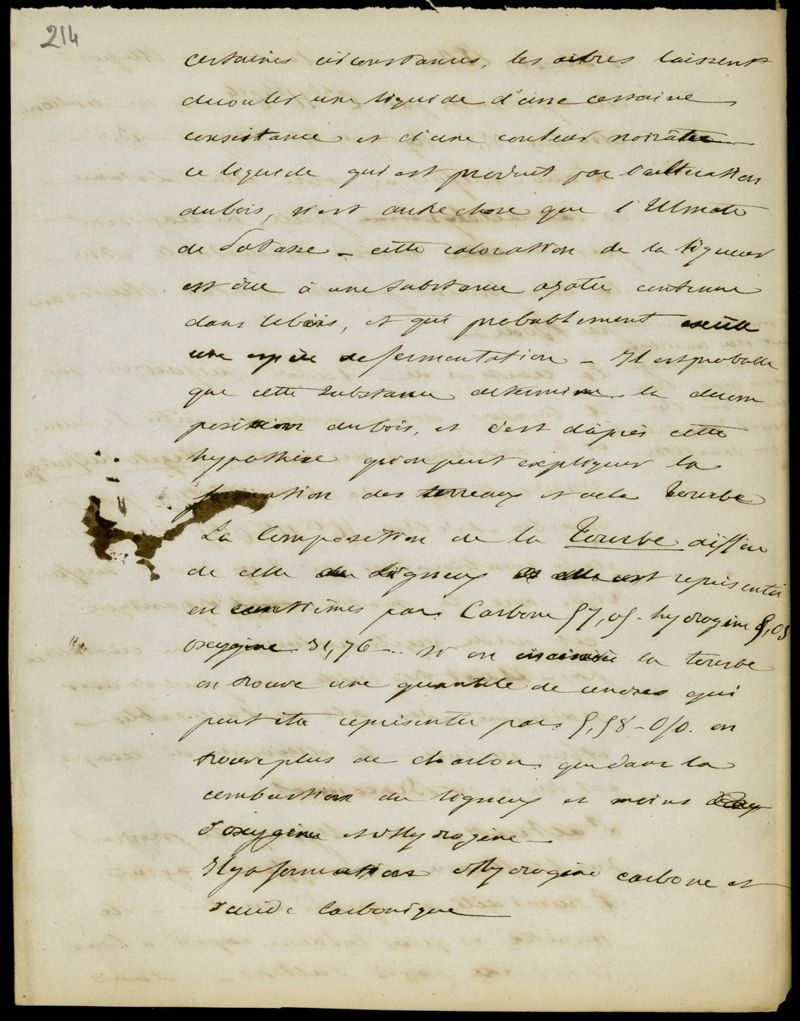 214
certaines circonstances, les arbres laissent
découler une liquide d'une certaine
consistance et d'une couleur noirâtre
ce liquide qui est produit par l'altération
du bois, n'est autre chose que l'Ulmate
de Potasse – cette coloration de la liqueur
est due à une substance azotée contenue
dans le bois, et qui probablement excite
une espèce de fermentation – Il est probable
que cette substance determine la décom
position du bois, et c'est d'après cette
hypothèse qu'on peut expliquer la
formation des terreaux et de la Tourbe
La Composition de la Tourbe diffère
de celle du Ligneux et elle est représentée
en centièmes par Carbone 57,05 – hydrogène 5,03
oxygène 31,76 – si on incinère la tourbe
on trouve une quantité de cendres qui
peut être représentée par 5,58 – 0/0. on
trouve plus de charbon que dans la
combustion du ligneux et moins
d'oxygène et d'Hydrogène –
Il y a formation d'Hydrogène carboné et
d'acide Carbonique